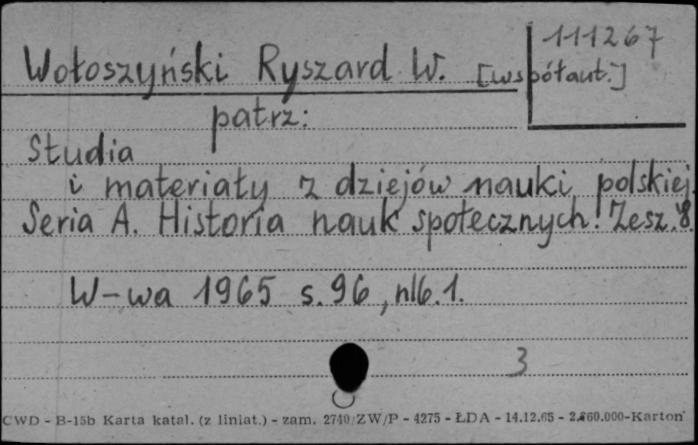 111267
Wołoszyński Ryszard W. [współaut.]
patrz:
Studia
i materiały z dziejów nauki polskiej
Seria A. Historia nauk społecznych. Zesz. 8.
W-wa 1965 s. 96, nlb. 1.
3
CWD - B-15b Karta katal. (z liniat.) - zam. 2740/ZW/P - 4275 - ŁDA - 14.12.65 - 2.860.000-Karton